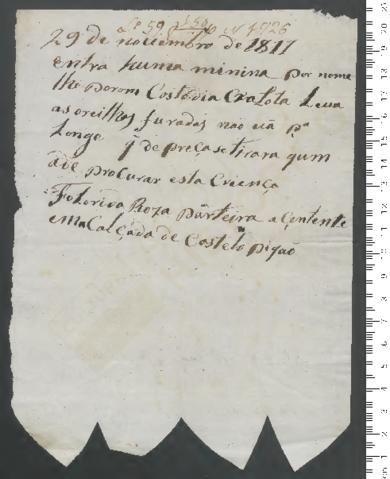 Lº 59 Nº 1726
29 de noviembro de 1811
entra huma minina por nome
lho porom Custodia Carlota Leua
as oreilhas furadas não uã pª
Longe q̃ de preça se tirara qum
ade procurar esta Creença
Folorida Roza parteira a çentente
ema Calçada de Castelo pição